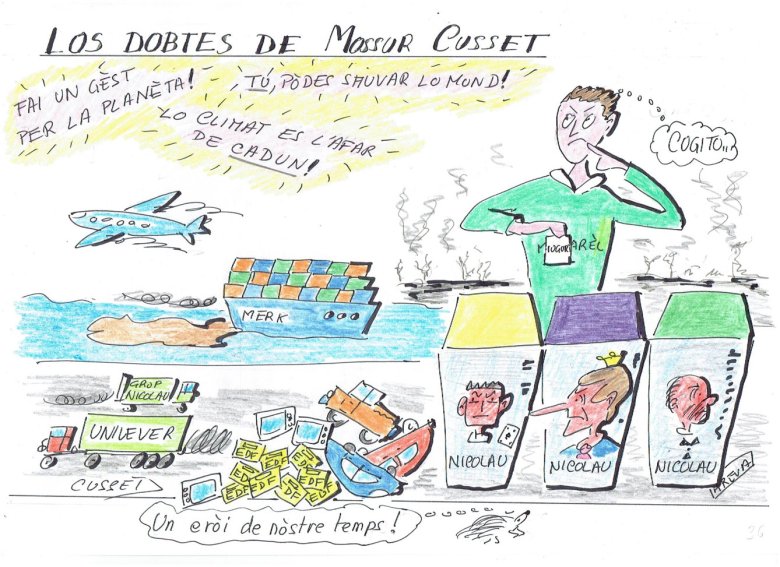 LOS DOBTES DE MOSSUR CUSSET
FAI UN GÈST
PER LA PLANÈTA!
TÚ, PÒDES SAUVAR LO MOND!
LO CLIMAT ES L'AFAR
DE CADUN!
COGITO...
MERK
GROP
NICOLAU
UNILEVER
CUSSET
EDF
EDF
EDF
EDF
EDF
EDF
NICOLAU
NICOLAU
NICOLAU
Un eròi de nòstre temps!
36